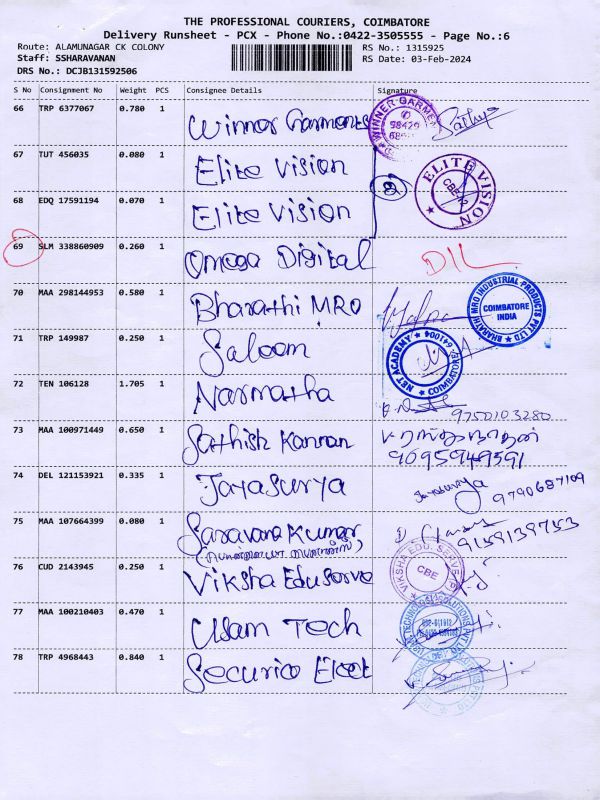 THE PROFESSIONAL COURIERS, COIMBATORE
Delivery Runsheet - PCX - Phone No.:0422-3505555 - Page No.:6
Route: ALAMUNAGAR CK COLONY
RS No.: 1315925
Staff: SSHARAVANAN
RS Date: 03-Feb-2024
DRS No.: DCJB131592506
S No Consignment No Weight PCS Consignee Details Signature
66 TRP 6377067 0.780 1 Winner Garments
WINNER GARMEN
Sathya
67 TUT 456035 0.080 1 Elite Vision
ELITE VISION
CBE-12
68 EDQ 17591194 0.070 1 Elite Vision
②
69 SLM 338860909 0.260 1 Omega Digital DIL
70 MAA 298144953 0.580 1 Bharathi MRO
BHARATHI MRO INDUSTRIAL PRODUCTS PVT LTD
COIMBATORE
INDIA
71 TRP 149987 0.250 1 Saloom
NET ACADEMY
COIMBATORE 641004
72 TEN 106128 1.705 1 Narmatha 9750103280
73 MAA 100971449 0.650 1 Sathish Kannan
9695949591
74 DEL 121153921 0.335 1 Jayasurya Jayasurya 9790687109
75 MAA 107664399 0.080 1 Saravana Kumar 9159139753
76 CUD 2143945 0.250 1 Viksha Eduserve
VIKSHA EDU. SERVE
CBE
77 MAA 100210403 0.470 1 Usam Tech
78 TRP 4968443 0.840 1 Securico Elect